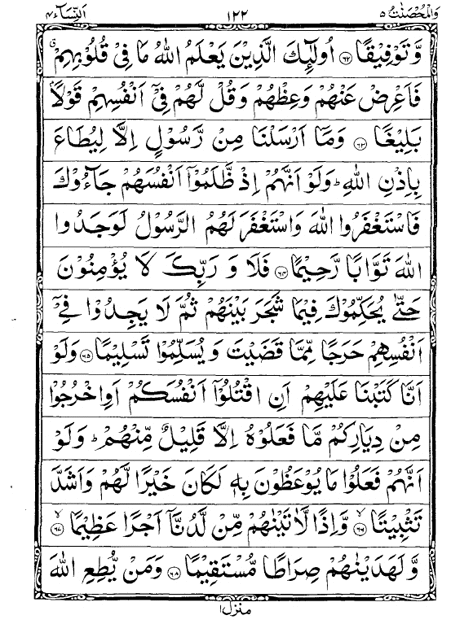 وَالْمُحْصَنٰتُ ٥ ١٢٢ النِّسَآء ٤
وَّ تَوْفِيْقًا ﴿٦٢﴾ اُولٰٓئِكَ الَّذِيْنَ يَعْلَمُ اللّٰهُ مَا فِيْ قُلُوْبِهِمْ ۗ
فَاَعْرِضْ عَنْهُمْ وَعِظْهُمْ وَ قُلْ لَّهُمْ فِيْۤ اَنْفُسِهِمْ قَوْلًاۢ
بَلِيْغًا ﴿٦٣﴾ وَمَاۤ اَرْسَلْنَا مِنْ رَّسُوْلٍ اِلَّا لِيُطَاعَ
بِاِذْنِ اللّٰهِ ؕ وَلَوْ اَنَّهُمْ اِذْ ظَّلَمُوْۤا اَنْفُسَهُمْ جَآءُوْكَ
فَاسْتَغْفَرُوا اللّٰهَ وَاسْتَغْفَرَ لَهُمُ الرَّسُوْلُ لَوَجَدُوا
اللّٰهَ تَوَّابًا رَّحِيْمًا ﴿٦٤﴾ فَلَا وَ رَبِّكَ لَا يُؤْمِنُوْنَ
حَتّٰى يُحَكِّمُوْكَ فِيْمَا شَجَرَ بَيْنَهُمْ ثُمَّ لَا يَجِدُوْا فِيْۤ
اَنْفُسِهِمْ حَرَجًا مِّمَّا قَضَيْتَ وَ يُسَلِّمُوْا تَسْلِيْمًا ﴿٦٥﴾ وَلَوْ
اَنَّا كَتَبْنَا عَلَيْهِمْ اَنِ اقْتُلُوْۤا اَنْفُسَكُمْ اَوِ اخْرُجُوْا
مِنْ دِيَارِكُمْ مَّا فَعَلُوْهُ اِلَّا قَلِيْلٌ مِّنْهُمْ ؕ وَلَوْ
اَنَّهُمْ فَعَلُوْا مَا يُوْعَظُوْنَ بِهٖ لَكَانَ خَيْرًا لَّهُمْ وَاَشَدَّ
تَثْبِيْتًا ﴿٦٦﴾ وَّاِذًا لَّاٰتَيْنٰهُمْ مِّنْ لَّدُنَّاۤ اَجْرًا عَظِيْمًا ﴿٦٧﴾
وَّ لَهَدَيْنٰهُمْ صِرَاطًا مُّسْتَقِيْمًا ﴿٦٨﴾ وَمَنْ يُّطِعِ اللّٰهَ
منزل ١